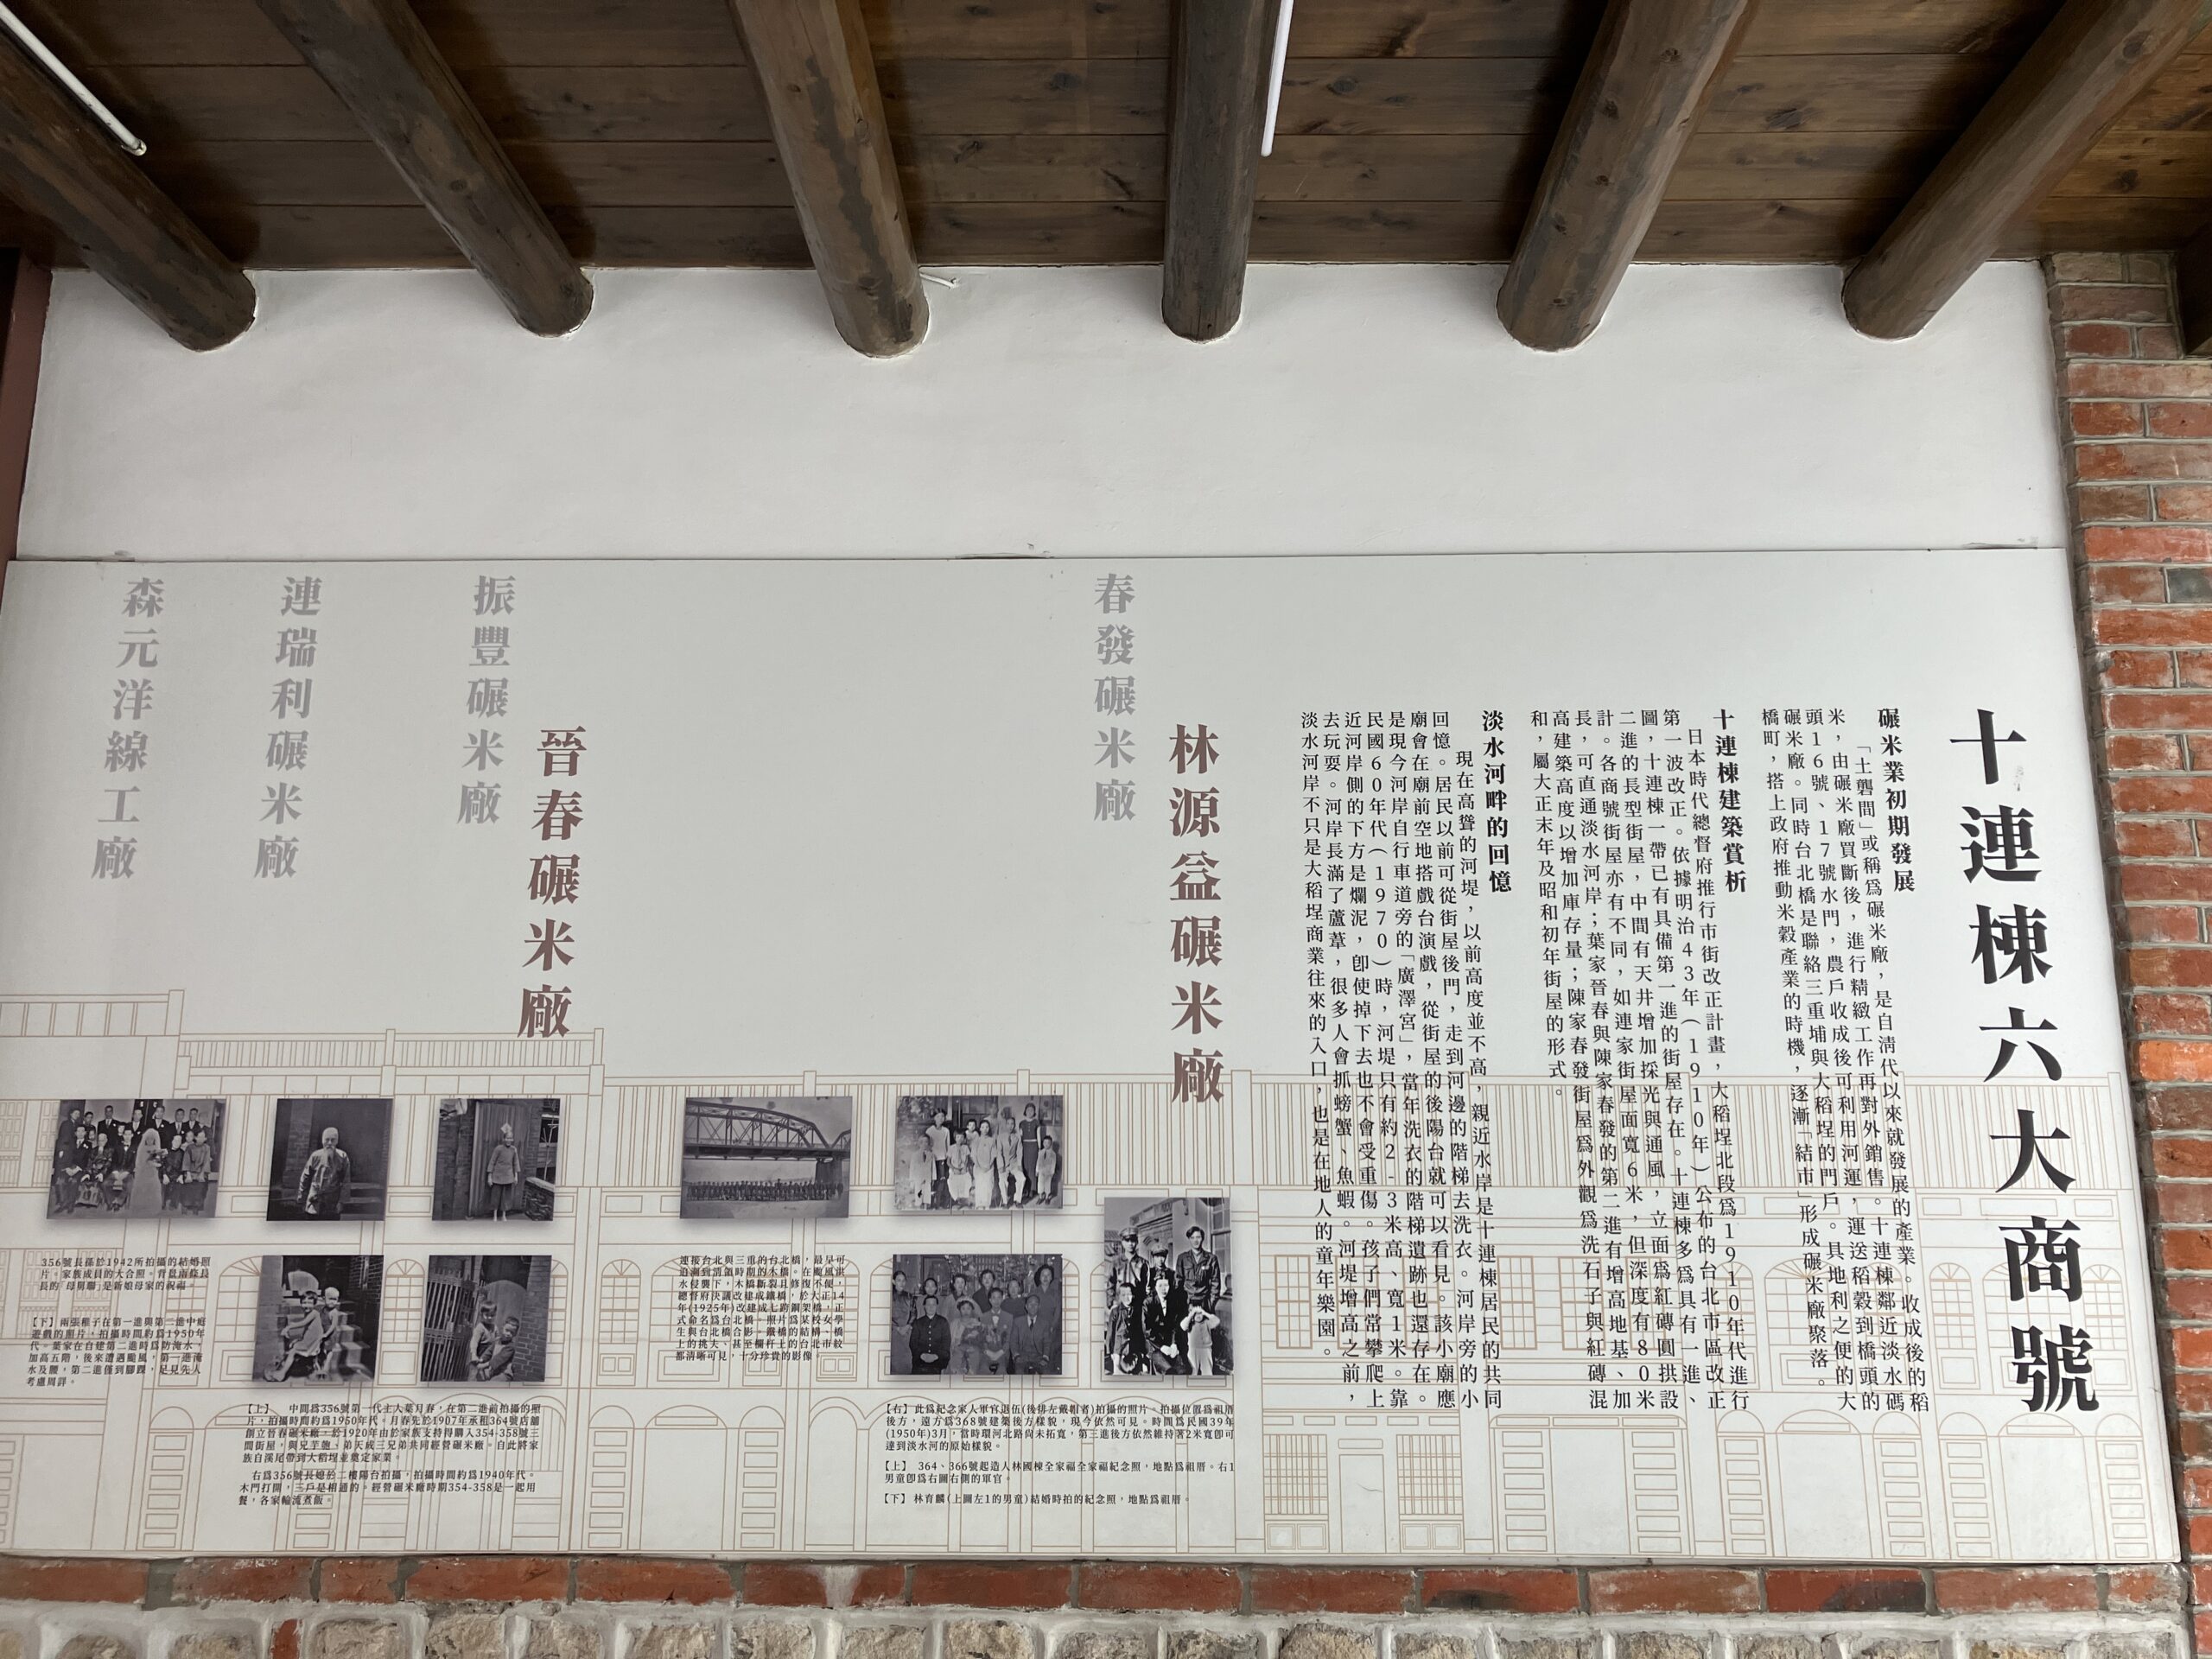 十連棟六大商號
碾米業初期發展
「土礱間」或稱為碾米廠,是自清代以來就發展的產業。收成後的稻
米,由碾米廠買斷後,進行精緻工作再對外銷售。十連棟鄰近淡水碼
頭16號、17號水門,農戶收成後可利用河運,運送稻穀到橋頭的
碾米廠。同時台北橋是聯絡三重埔與大稻埕的門戶。具地利之便的大
橋町,搭上政府推動米穀產業的時機,逐漸「結市」形成碾米廠聚落。
十連棟建築賞析
日本時代總督府推行市街改正計畫,大稻埕北段為1910年代進行
第一波改正。依據明治43年(1910年)公布的台北市區改正
圖,十連棟一帶已有具備第一進的街屋存在。十連棟多為具有一進、
二進的長型街屋,中間有天井增加採光與通風,立面為紅磚圓拱設
計。各商號街屋亦有不同,如連家街屋面寬6米,但深度有80米
長,可直通淡水河岸;葉家晉春與陳家春發的第二進有增高地基、加
高建築高度以增加庫存量;陳家春發街屋為外觀為洗石子與紅磚混
和,屬大正末年及昭和初年街屋的形式。
淡水河畔的回憶
現在高聳的河堤,以前高度並不高,親近水岸是十連棟居民的共同
回憶。居民以前可從街屋後門,走到河邊的階梯去洗衣。河岸旁的小
廟會在廟前空地搭戲台演戲,從街屋的後陽台就可以看見。該小廟應
是現今河岸自行車道旁的「廣澤宮」,當年洗衣的階梯遺跡也還存在。
民國60年代(1970)時,河堤只有約2-3米高、寬1米。靠
近河岸側的下方是爛泥,即使掉下去也不會受重傷。孩子們常攀爬上
去玩耍。河岸長滿了蘆葦,很多人會抓螃蟹、魚蝦。河堤增高之前,
淡水河岸不只是大稻埕商業往來的入口,也是在地人的童年樂園。
林源益碾米廠
春發碾米廠
【右】此為紀念家人軍官退伍(後排左戴帽者)拍攝的照片。拍攝位置為祖厝
後方,遠方為368號建築後方樣貌,現今依然可見。時間為民國39年
(1950年)3月,當時環河北路尚未拓寬,第三進後方依然維持著2米寬即可
達到淡水河的原始樣貌。
【上】 364、366號起造人林國棟全家福全家福紀念照,地點為祖厝。右1
男童即為右圖右側的軍官。
【下】 林育麟(上圖左1的男童)結婚時拍的紀念照,地點為祖厝。
連接台北與三重的台北橋,最早可
總督府決議改建成鐵橋,於大正14
年(1925年)改建成七跨鋼架橋,正
式命名為台北橋。照片為某校女學
都清晰可見,十分珍貴的影像。
晉春碾米廠
振豐碾米廠
連瑞利碾米廠
森元洋線工廠
【上】 中間為356號第一代主人葉月春,在第二進前拍攝的照
片,拍攝時間約為1950年代。月春先於1907年承租364號店舖
創立晉春碾米廠,於1920年由於家族支持得購入354-358號三
間街屋,與兄芋匏、弟天成三兄弟共同經營碾米廠。自此將家
族自溪尾帶到大稻埕並奠定家業。
右為356號長媳於二樓陽台拍攝,拍攝時間約為1940年代。
木門打開,三戶是相通的。經營碾米廠時期354-358是一起用
餐,各家輪流煮飯。
356號長孫於1942所拍攝的結婚照
片。家族成員的大合照。背景兩條長
長的「母舅聯」是新娘母家的祝福。
【下】 兩張稚子在第一進與第二進中庭
遊戲的照片,拍攝時間約為1950年
代。葉家在自建第二進時為防淹水,
加高五階,後來遭遇颱風,第一進淹
水及腰,第二進僅到腳踝,足見先人
考慮周詳。